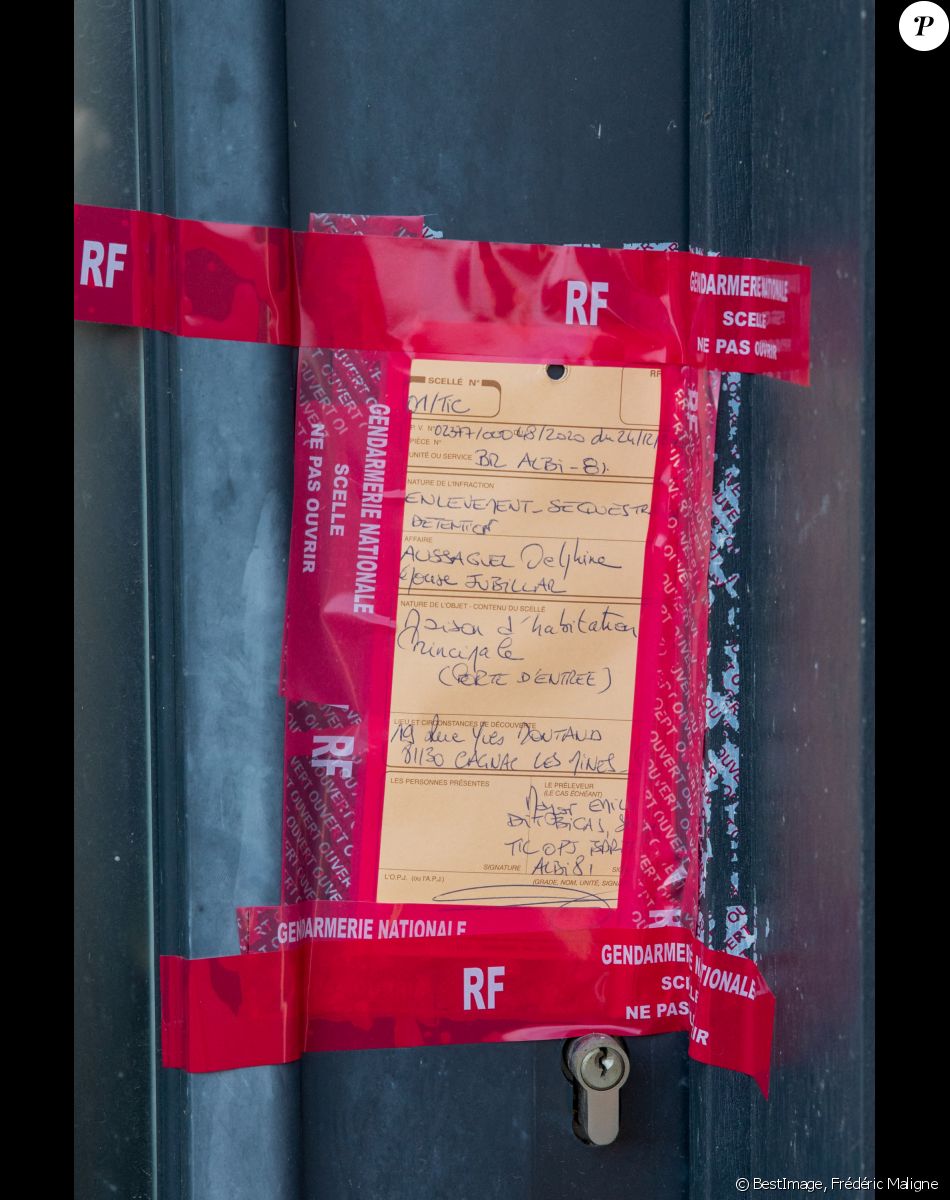 P
RF
RF
GENDARMERIE NATIONALE
SCELLE
NE PAS OUVRIR
GENDARMERIE NATIONALE
SCELLE
NE PAS OUVRIR
RF
SCELLÉ N°
01/TIC
P.V. N° 02377/00048/2020 du 24/12/
PIÈCE N°
UNITÉ OU SERVICE BR ALBI - 81.
NATURE DE L'INFRACTION
ENLEVEMENT - SEQUESTR
DETENTION
AFFAIRE
AUSSAGUEL Delphine
épouse JUBILLAR
NATURE DE L'OBJET - CONTENU DU SCELLÉ
Maison d'habitation
Principale
(PORTE D'ENTREE)
LIEU ET CIRCONSTANCES DE DÉCOUVERTE
19 Rue Yves MONTAND
81130 CAGNAC LES MINES
LES PERSONNES PRÉSENTES
LE PRÉLEVEUR
(LE CAS ÉCHÉANT)
TIC OPJ
ALBI 81
SIGNATURE
L'O.P.J. (ou l'A.P.J.)
(GRADE, NOM, UNITÉ, SIGN
RF
GENDARMERIE NATIONALE
RF
GENDARMERIE NATIONALE
SCELLE
NE PAS OUVRIR
© BestImage, Frédéric Maligne